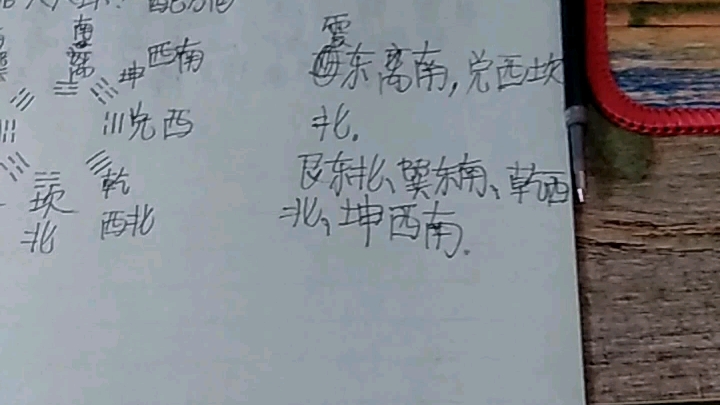 配方位
南
离
坤西南
兑西
乾
西北
坎
北
震
东离南,兑西坎
北。
艮东北、巽东南、乾西
北,坤西南。